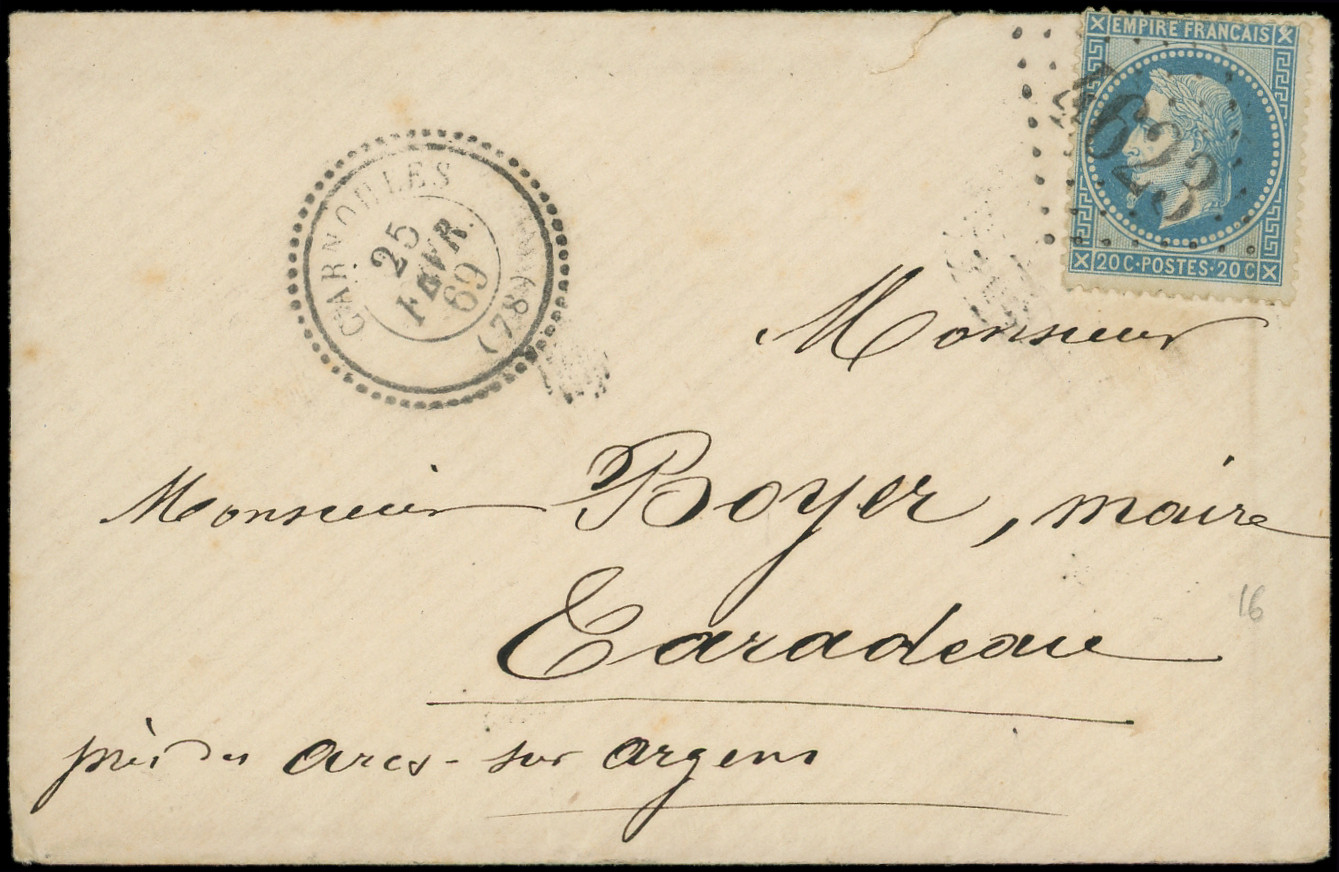 EMPIRE FRANÇAIS
4623
20 C · POSTES · 20 C
CARNOULES
25
FEVR.
69
(78)
Monsieur
Monsieur Boyer, maire
Taradeau
près des arcs - sur argens
16